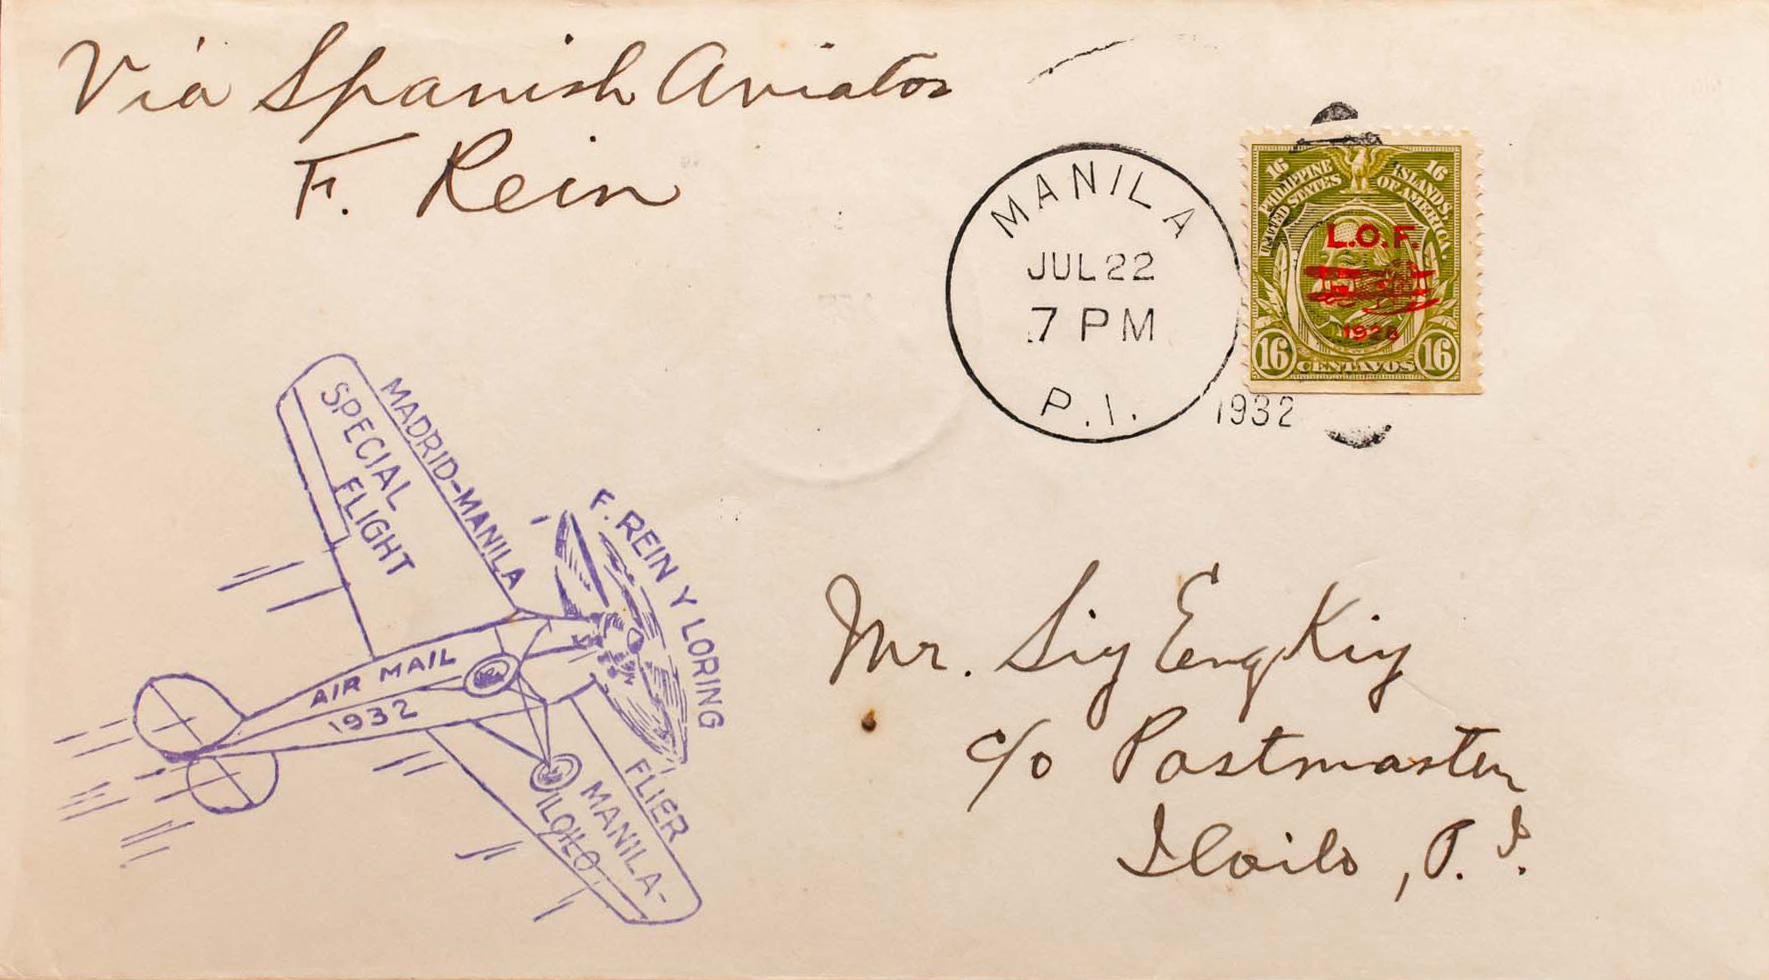 Via Spanish Aviator
F. Rein
MANILA
JUL 22
7 PM
P.I.
1932
16 16
PHILIPPINE ISLANDS,
UNITED STATES OF AMERICA.
L.O.F.
1926
16 CENTAVOS 16
SPECIAL
FLIGHT
MADRID-MANILA
F. REIN Y LORING
FLIER
AIR MAIL
1932
MANILA-
ILOILO
Mr. Sig Eng Kiy
c/o Postmaster
Iloilo, P.I.